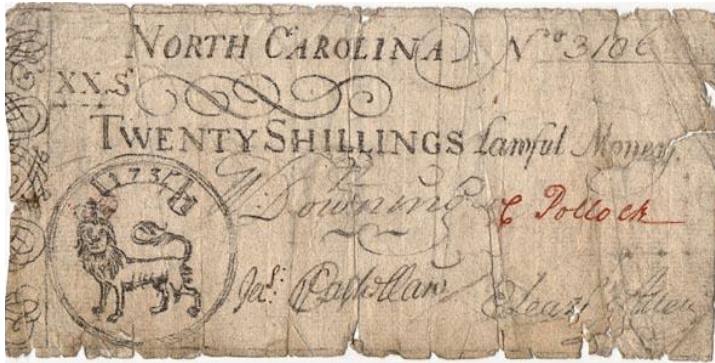 NORTH CAROLINA No 3106
XX.S
TWENTY SHILLINGS Lawful Money.
1735
W: Downing C Pollock
Jas: Castellaw Eleazr Allen